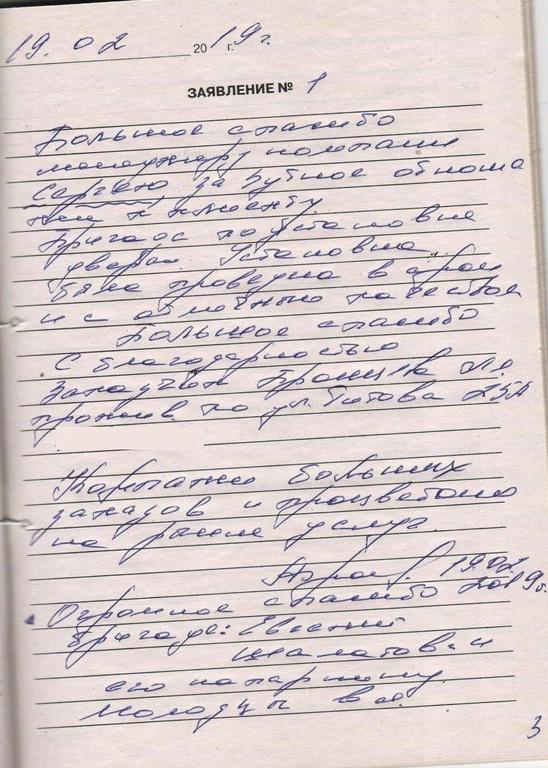 19.02 2019 г.
ЗАЯВЛЕНИЕ № 1
Большое спасибо
менеджеру компании
Сергею за чуткое отноше
ние к клиенту
Бригаде по установке
дверей. Установка
была проведена в срок
и с отличным качеством
Большое спасибо
С благодарностью
заказчик
прожив. по ул. Титова 25А
Компании больших
заказов и процветания
на рынке услуг.
19.02
Огромное спасибо 2019г.
бригаде: Евгений
и
его напарнику.
Молодцы все
3